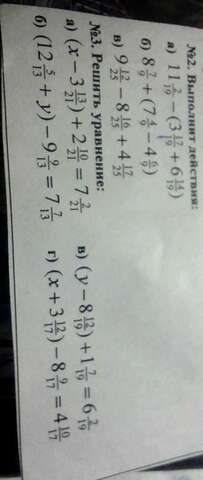 №2. Выполнит действия:
а) 11 2/19 − (3 17/19 + 6 14/19)
б) 8 7/9 + (7 4/9 − 4 6/9)
в) 9 12/25 − 8 16/25 + 4 17/25
№3. Решить уравнение:
а) (x − 3 13/21) + 2 10/21 = 7 2/21
б) (12 5/13 + y) − 9 9/13 = 7 7/13
в) (y − 8 12/19) + 1 7/19 = 6 2/19
г) (x + 3 12/17) − 8 9/17 = 4 10/17